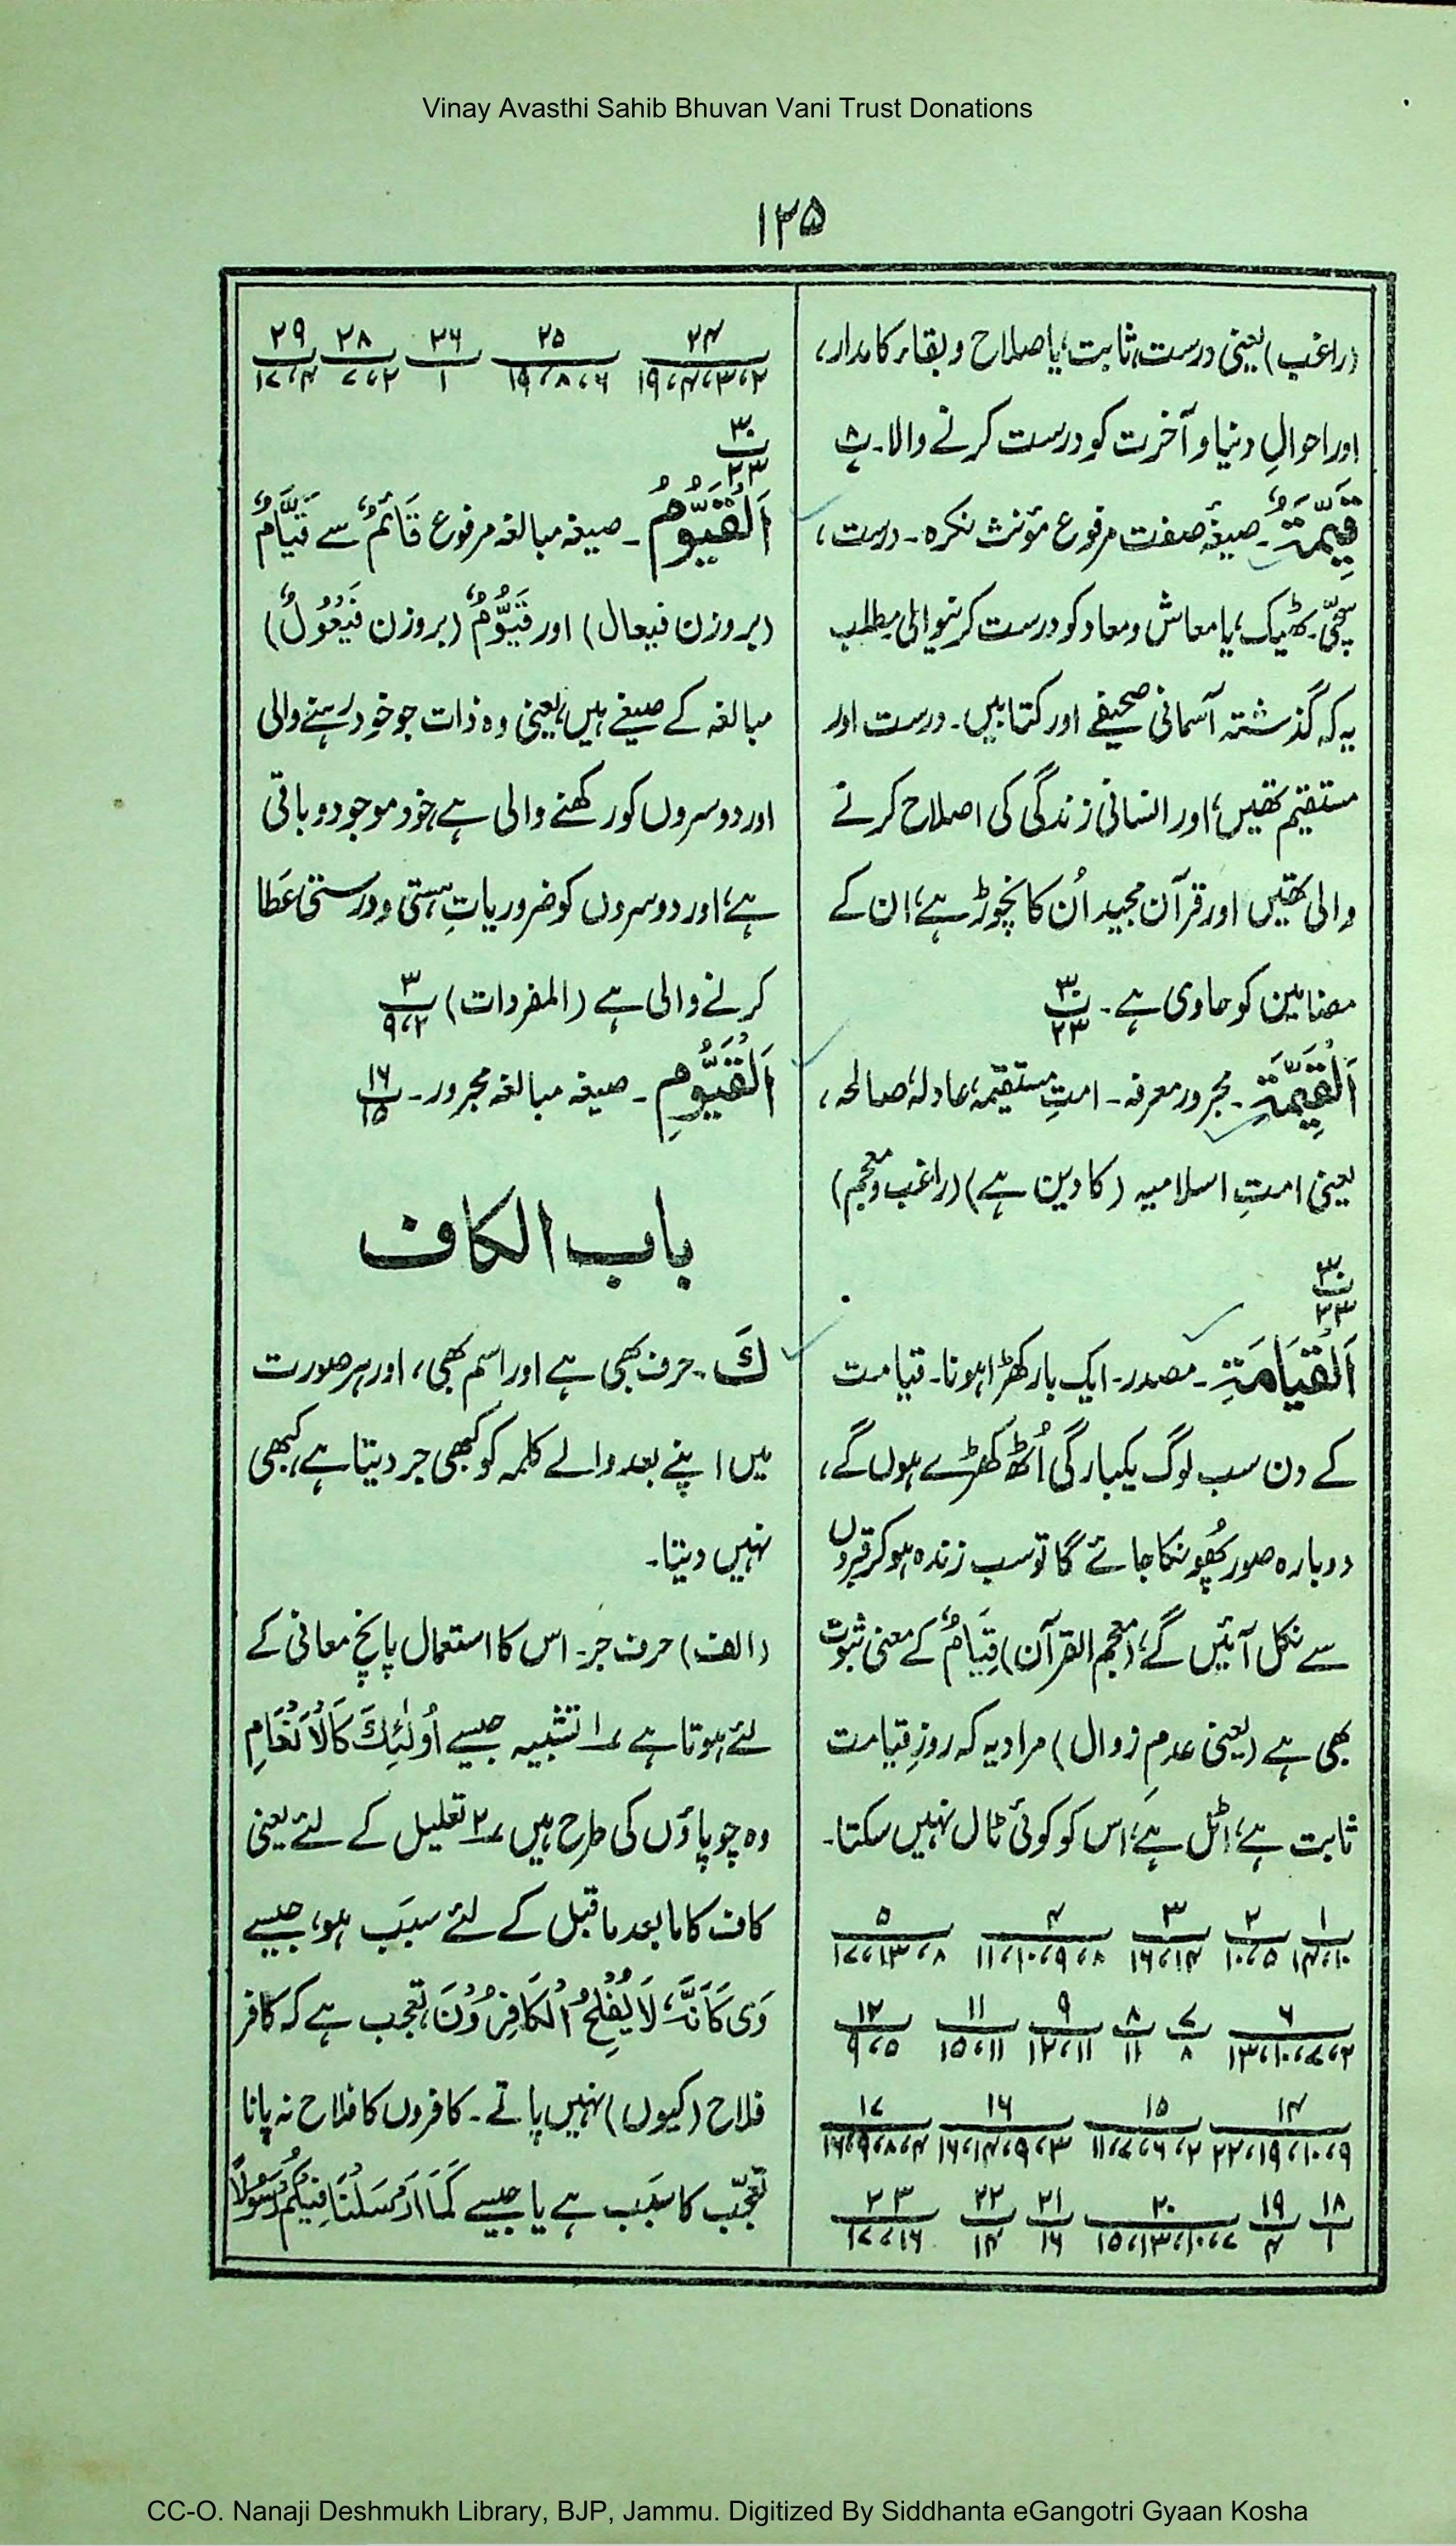 Vinay Avasthi Sahib Bhuvan Vani Trust Donations
۱۲۵
(راغب) یعنی درست، ثابت، یا صلاح و بقاء کا مدار،
اور احوالِ دنیا و آخرت کو درست کرنے والا۔ ۸/۷
قَیِّمَۃٌ۔ صیغۂ صفت مرفوع مؤنث نکرہ۔ درست،
سچّی۔ ٹھیک، یا معاش و معاد کو درست کرنیوالی مطلب
یہ کہ گذشتہ آسمانی صحیفے اور کتابیں۔ درست اور
مستقیم تھیں، اور انسانی زندگی کی اصلاح کرنے
والی تھیں اور قرآن مجید اُن کا نچوڑ ہے، ان کے
مضامین کو حاوی ہے۔ ۳۰/۲۳
اَلْقَیِّمَۃِ۔ مجرور معرفہ۔ امتِ مستقیمہ، عادلہ، صالحہ،
یعنی امتِ اسلامیہ (کا دین ہے) (راغب و معجم)
۳۰/۲۳
اَلْقِیَامَۃِ۔ مصدر۔ ایک بار کھڑا ہونا۔ قیامت
کے دن سب لوگ یکبارگی اُٹھ کھڑے ہوں گے،
دوبارہ صور پُھونکا جائے گا تو سب زندہ ہو کر قبروں
سے نکل آئیں گے، (معجم القرآن) قِیَامٌ کے معنی ثبوت
بھی ہے (یعنی عدمِ زوال) مراد یہ کہ روزِ قیامت
ثابت ہے، اٹل ہے، اس کو کوئی ٹال نہیں سکتا۔
۱/۱۰، ۱۴ ۲/۵، ۱۰ ۳/۱۴، ۱۶ ۴/۸، ۹، ۱۰، ۱۱ ۵/۸، ۱۳، ۱۷
۶/۲، ۷، ۱۰، ۱۳ ۷/۸ ۸/۱۱ ۹/۱۱، ۱۲ ۱۱/۱۱، ۱۵ ۱۲/۵، ۹
۱۴/۹، ۱۰، ۱۹، ۲۲ ۱۵/۲، ۶، ۷، ۱۱ ۱۶/۳، ۹، ۱۴، ۱۶ ۱۷/۴، ۸، ۹، ۱۶
۱۸/۱ ۱۹/۴ ۲۰/۷، ۱۰، ۱۳، ۱۵ ۲۱/۱۶ ۲۲/۱۴ ۲۳/۱۶، ۱۷
۲۴/۲، ۳، ۴، ۱۹ ۲۵/۶، ۸، ۱۹ ۲۶/۱ ۲۸/۲، ۷ ۲۹/۴، ۱۷
۳۰/۲۳
اَلْقَیُّوْمُ۔ صیغہ مبالغہ مرفوع قَائِمٌ سے قَیَّامٌ
(بروزن فیعال) اور قَیُّوْمٌ (بروزن فَیْعُوْلٌ)
مبالغہ کے صیغے ہیں، یعنی وہ ذات جو خود رہنے والی
اور دوسروں کو رکھنے والی ہے، خود موجود و باقی
ہے، اور دوسروں کو ضروریاتِ ہستی و درستی عَطا
کرنے والی ہے (المفردات) ۳/۲، ۹
اَلْقَیُّوْمِ۔ صیغہ مبالغہ مجرور۔ ۱۶/۱۵
باب الکاف
كَ۔ حرف بھی ہے اور اسم بھی، اور ہر صورت
میں اپنے بعد والے کلمہ کو کبھی جر دیتا ہے، کبھی
نہیں دیتا۔
(الف) حرف جر۔ اس کا استعمال پانچ معانی کے
لئے ہوتا ہے ۱ تشبیہ جیسے اُولٰئِكَ كَالْاَنْعَامِ
وہ چوپاؤں کی طرح ہیں ۲ تعلیل کے لئے یعنی
کاف کا مابعد ماقبل کے لئے سبَب ہو، جیسے
وَیْ كَاَنَّہٗ لَا یُفْلِحُ الْكَافِرُوْنَ، تعجب ہے کہ کافر
فلاح (کیوں) نہیں پاتے۔ کافروں کا فلاح نہ پانا
تعجّب کا سبَب ہے یا جیسے كَمَا اَرْسَلْنَا فِیْكُمْ رَسُوْلًا
CC-O. Nanaji Deshmukh Library, BJP, Jammu. Digitized By Siddhanta eGangotri Gyaan Kosha